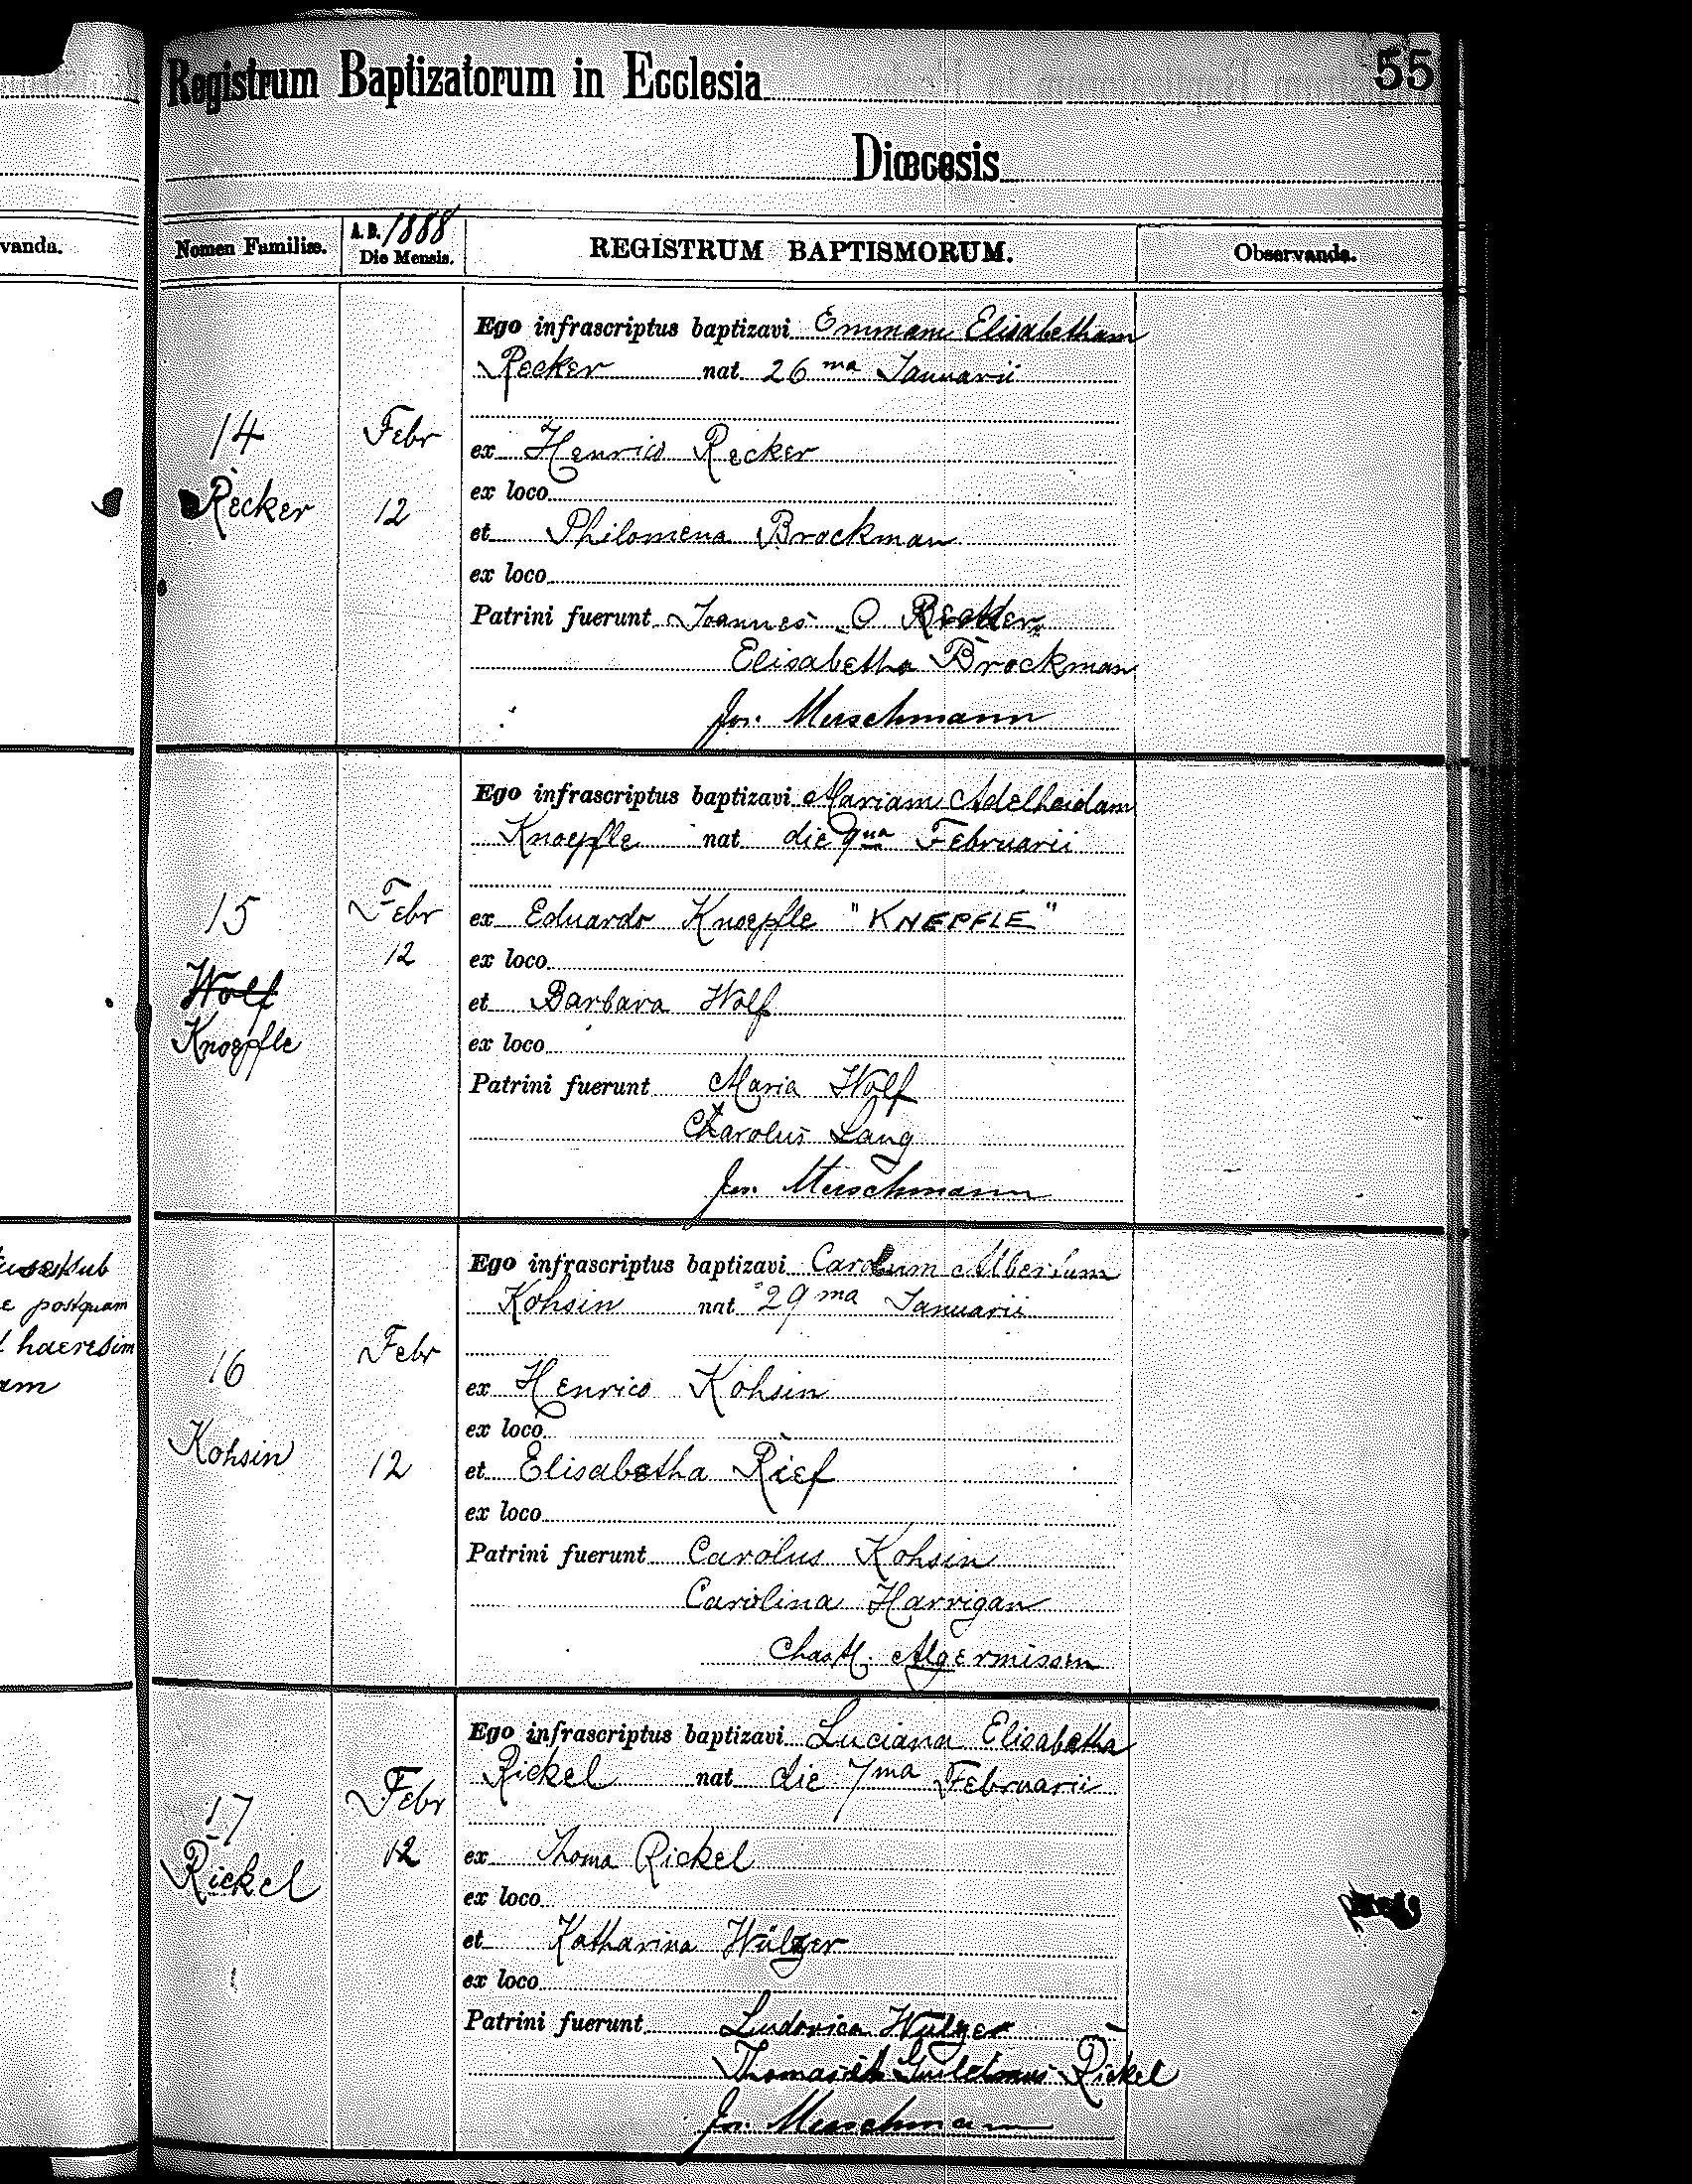 Registrum Baptizatorum in Ecclesia 55
Diœcesis
vanda.
Nomen Familiæ. A. D. 1888 Die Mensis. REGISTRUM BAPTISMORUM. Observanda.
14
Recker
Febr
12
Ego infrascriptus baptizavi Emmam Elisabetham
Recker nat 26 ma Januarii
ex Henrico Recker
ex loco
et Philomena Brockman
ex loco
Patrini fuerunt Joannes O Recker
Elisabetha Brockman
Jos. Merschmann
15
Wolf
Knoepfle
Febr
12
Ego infrascriptus baptizavi Mariam Adelheidam
Knoepfle nat die 9na Februarii
ex Eduardo Knoepfle "KNEPFLE"
ex loco
et Barbara Wolf
ex loco
Patrini fuerunt Maria Wolf
Carolus Lang
Jos. Merschmann
sub
e postquam
haeresim
am
16
Kohsin
Febr
12
Ego infrascriptus baptizavi Carolum Albertum
Kohsin nat 29 ma Januarii
ex Henrico Kohsin
ex loco
et Elisabetha Rief
ex loco
Patrini fuerunt Carolus Kohsin
Carolina Harrigan
Chas M. Algermissen
17
Rickel
Febr
12
Ego infrascriptus baptizavi Luciana Elisabetha
Rickel nat die 7ma Februarii
ex Thoma Rickel
ex loco
et Katharina Wülzer
ex loco
Patrini fuerunt Ludovica Wülzer
Thomas et Guilelmus Rickel
Jos. Merschmann